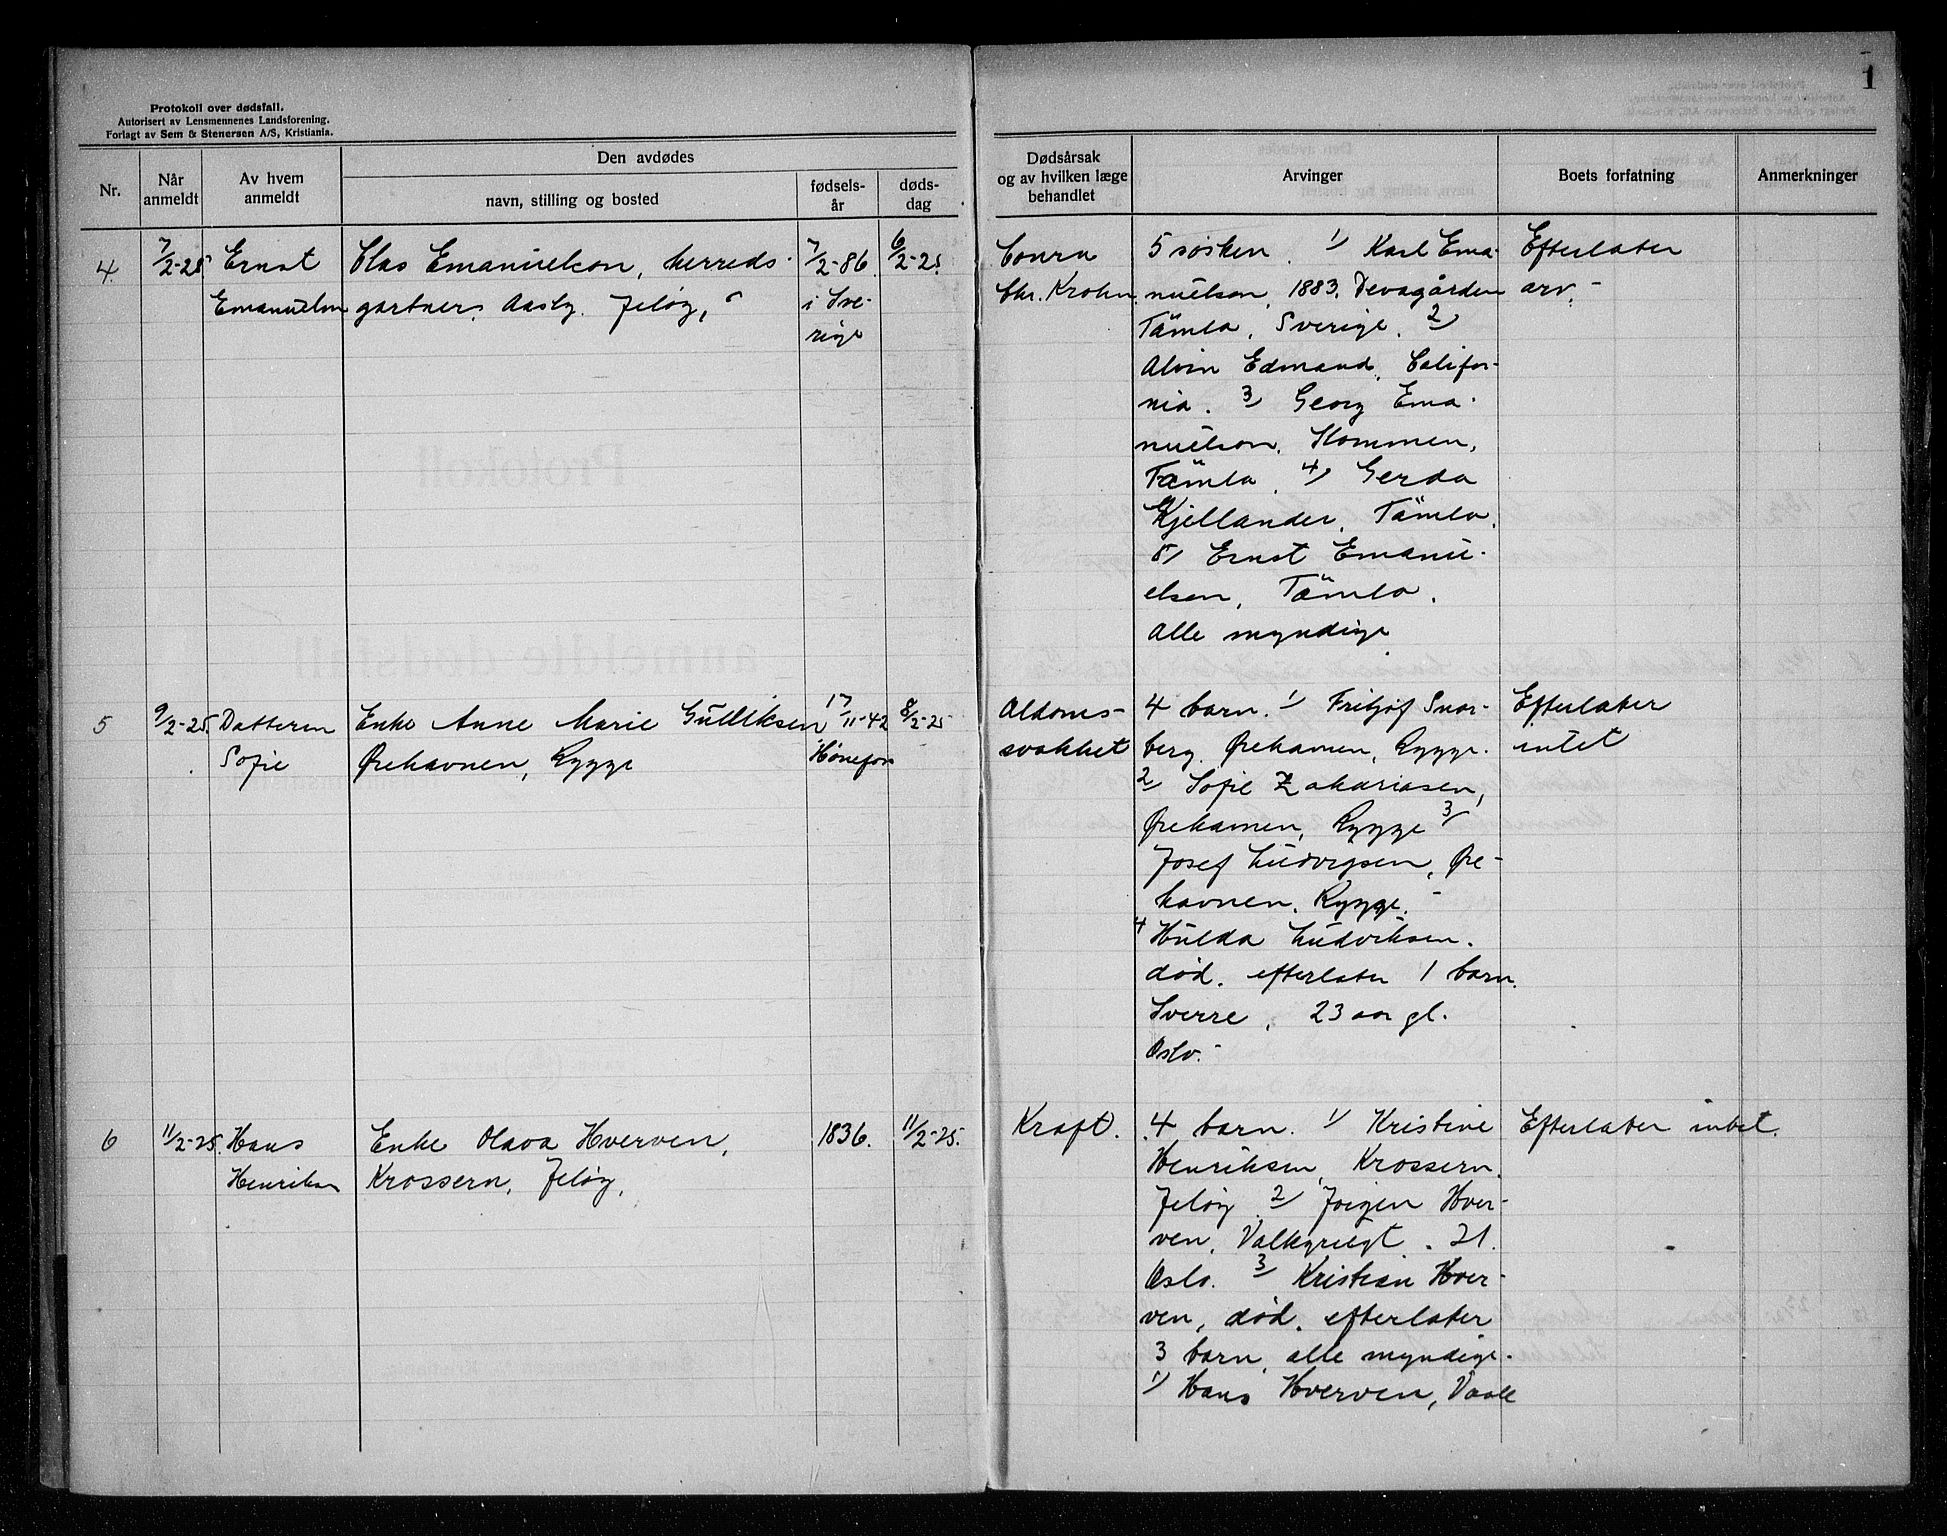 1
Protokoll over dødsfall.
Autorisert av Lensmennenes Landsforening.
Forlagt av Sem & Stenersen A/S, Kristiania.
Nr.
Når anmeldt
Av hvem anmeldt
Den avdødes
navn, stilling og bosted
fødselsår
dødsdag
Dødsårsak og av hvilken læge behandlet
Arvinger
Boets forfatning
Anmerkninger
4.
7/2-25
Ernst
Emanuelson
Clas Emanuelson, herreds-
gartner, Aasly. Jeløy,
7/2-86.
i Sve-
rige
6/2-25.
Chr. Krohn
5 søsken. 1/ Karl Ema-
nuelson, 1883. Devagården
Tämla, Sverige. 2/
Alvin Edmand, Califor-
nia. 3/ Georg Ema-
nuelson, Kommen,
Tämla. 4/ Gerda
Kjellander, Tämla.
5/ Ernst Emanu-
elsen, Tämla.
Alle myndige
Efterlater
arv.-
5
9/2-25.
Datteren
Sofie
Enke Anne Marie Gulliksen
Ørehavnen, Rygge
17/11-42
Hønefos
8/2-25
Aldoms-
svakhet
4 barn. 1/ Fritjof Snar-
berg. Ørehavnen, Rygge.
2/ Sofie Zakariasen,
Ørehavnen, Rygge 3/
Josef Ludvigsen, Øre-
havnen, Rygge.-
4 Hulda Ludviksen.
død. efterlater 1 barn.
Sverre, 23 aar gl.
Oslo.-
Efterlater
intet
6
11/2-25.
Hans
Henriksen
Enke Olava Hverven,
Krossern, Jeløy,
1836.
11/2-25.
Kraft.
4 barn. 1/ Kristine
Henriksen, Krossern.
Jeløy. 2/ Jørgen Hver-
ven, Valkyriegt. 21.
Oslo. 3/ Kristian Hver-
ven, død. efterlater
3 barn, alle myndige.
1/ Hans Hverven, Vaale
Efterlater intet.